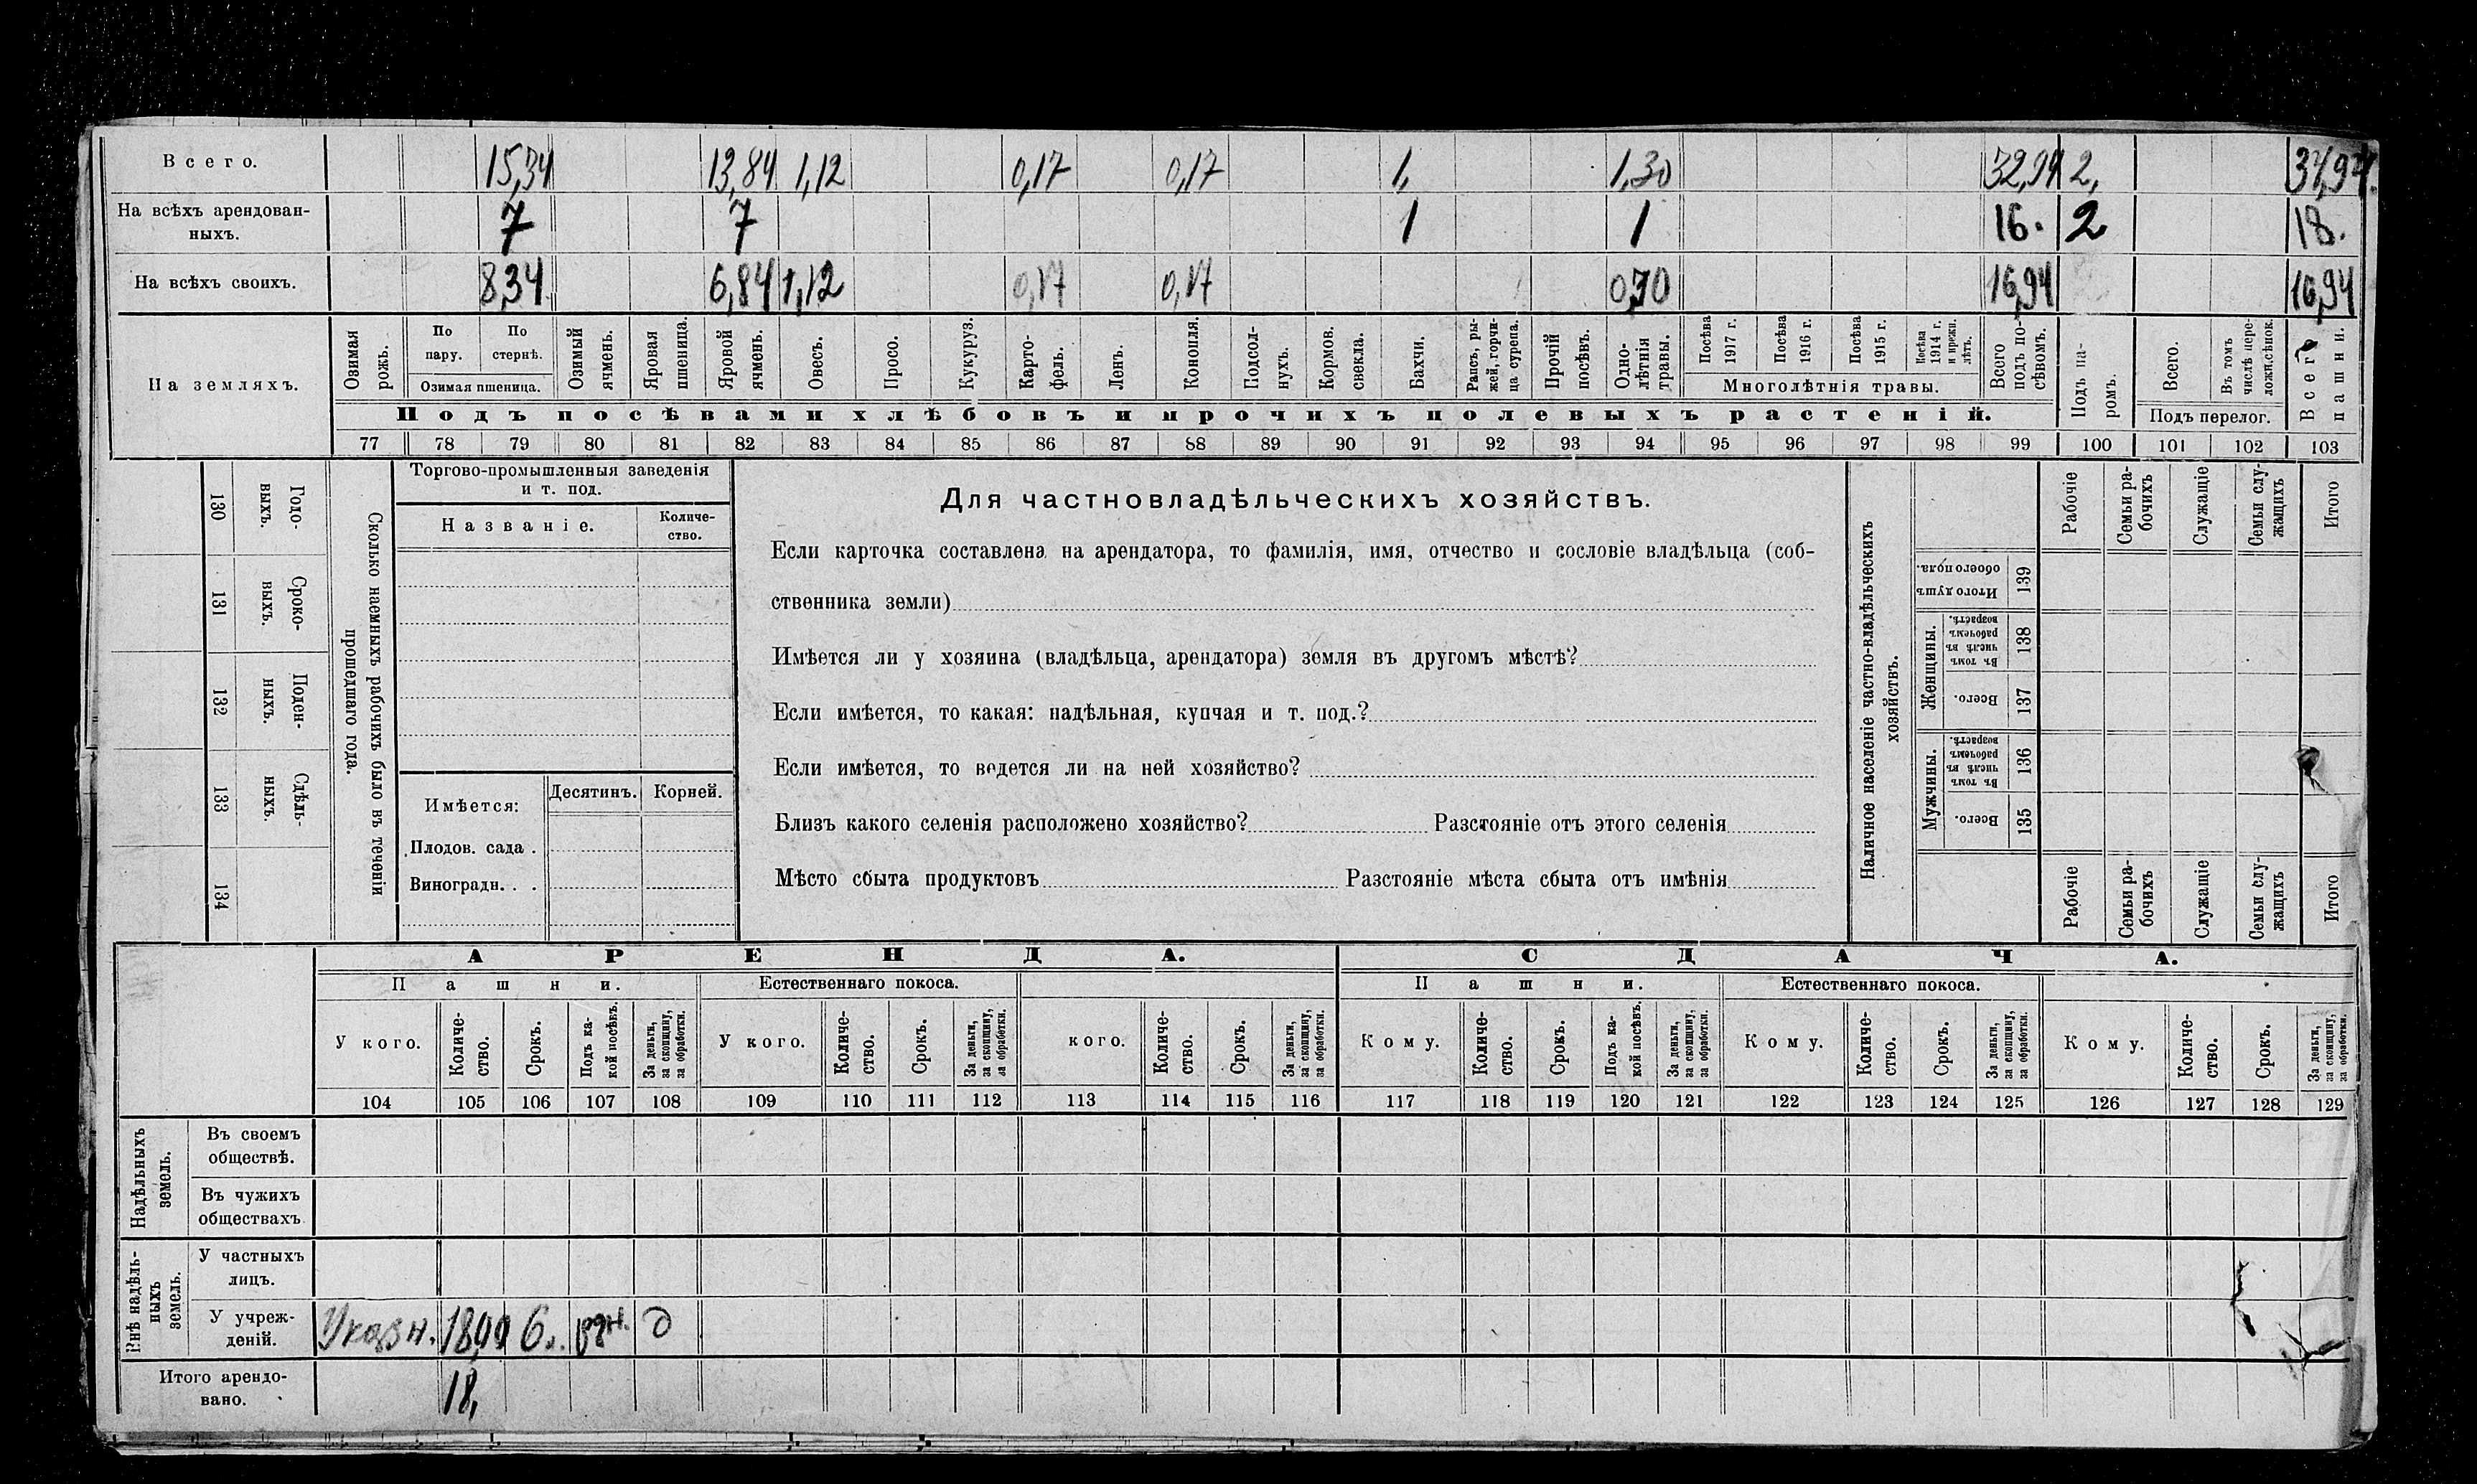 Всего. 15,34 13,84 1,12 0,17 0,17 1, 1,30 32,94 2, 34,94.
На всѣхъ арендован-
ныхъ. 7 7 1 1 16. 2 18.
На всѣхъ своихъ. 8,34 6,84 1,12 0,17 0,17 0,30 16,94 16,94
На земляхъ.
Озимая рожь.
По пару.
По стернѣ.
Озимая пшеница.
Озимый ячмень.
Яровая пшеница.
Яровой ячмень.
Овесъ.
Просо.
Кукуруз.
Карто-
фель.
Ленъ.
Конопля.
Подсол-
нухъ.
Кормов.
свекла.
Бахчи.
Рапсъ, ры-
жей, горчи-
ца сурепа.
Прочій
посѣвъ.
Одно-
лѣтнія
травы.
Посѣва
1917 г.
Посѣва
1916 г.
Посѣва
1915 г.
Посѣва
1914 г.
и прежн.
лѣтъ.
Многолѣтнія травы.
Всего
подъ по-
сѣвомъ.
Подъ па-
ромъ.
Всего.
Въ томъ
числѣ пере-
ложн.сѣнок.
Подъ перелог.
Всего
пашни.
Подъ посѣвами хлѣбовъ и прочихъ полевыхъ растеній.
77 78 79 80 81 82 83 84 85 86 87 88 89 90 91 92 93 94 95 96 97 98 99 100 101 102 103
130 Годо-
выхъ.
131 Сроко-
выхъ.
132 Поден-
ныхъ.
133 Сдѣль-
ныхъ.
134
Сколько наемныхъ рабочихъ было въ теченіи
прошедшаго года.
Торгово-промышленныя заведенія
и т. под.
Названіе.
Количе-
ство.
Имѣется:
Десятинъ.
Корней.
Плодов. сада .
Виноградн. . .
Для частновладѣльческихъ хозяйствъ.
Если карточка составлена на арендатора, то фамилія, имя, отчество и сословіе владѣльца (соб-
ственника земли)
Имѣется ли у хозяина (владѣльца, арендатора) земля въ другомъ мѣстѣ?
Если имѣется, то какая: надѣльная, купчая и т. под.?
Если имѣется, то ведется ли на ней хозяйство?
Близъ какого селенія расположено хозяйство? Разстояніе отъ этого селенія
Мѣсто сбыта продуктовъ Разстояніе мѣста сбыта отъ имѣнія
Наличное населеніе частно-владѣльческихъ
хозяйствъ.
Рабочіе
Семьи ра-
бочихъ
Служащіе
Семьи слу-
жащихъ
Итого
Итого душъ
обоего пола.
139
Женщины.
Въ томъ
числѣ въ
рабочемъ
возрастѣ.
138
Всего.
137
Мужчины.
Въ томъ
числѣ въ
рабочемъ
возрастѣ.
136
Всего.
135
Рабочіе
Семьи ра-
бочихъ
Служащіе
Семьи слу-
жащихъ
Итого
АРЕНДА. СДАЧА.
Пашни. Естественнаго покоса. Пашни. Естественнаго покоса.
У кого.
Количе-
ство.
Срокъ.
Подъ ка-
кой посѣвъ.
За деньги,
за скопщину,
за обработки.
У кого.
Количе-
ство.
Срокъ.
За деньги,
за скопщину,
за обработки.
кого.
Количе-
ство.
Срокъ.
За деньги,
за скопщину,
за обработки.
Кому.
Количе-
ство.
Срокъ.
Подъ ка-
кой посѣвъ.
За деньги,
за скопщину,
за обработки.
Кому.
Количе-
ство.
Срокъ.
За деньги,
за скопщину,
за обработки.
Кому.
Количе-
ство.
Срокъ.
За деньги,
за скопщину,
за обработки.
104 105 106 107 108 109 110 111 112 113 114 115 116 117 118 119 120 121 122 123 124 125 126 127 128 129
Надѣльныхъ
земель.
Въ своемъ
обществѣ.
Въ чужихъ
обществахъ
Внѣ надѣль-
ныхъ
земель.
У частныхъ
лицъ.
У учреж-
деній. У казн. 6. д
Итого арендо-
вано. 18,